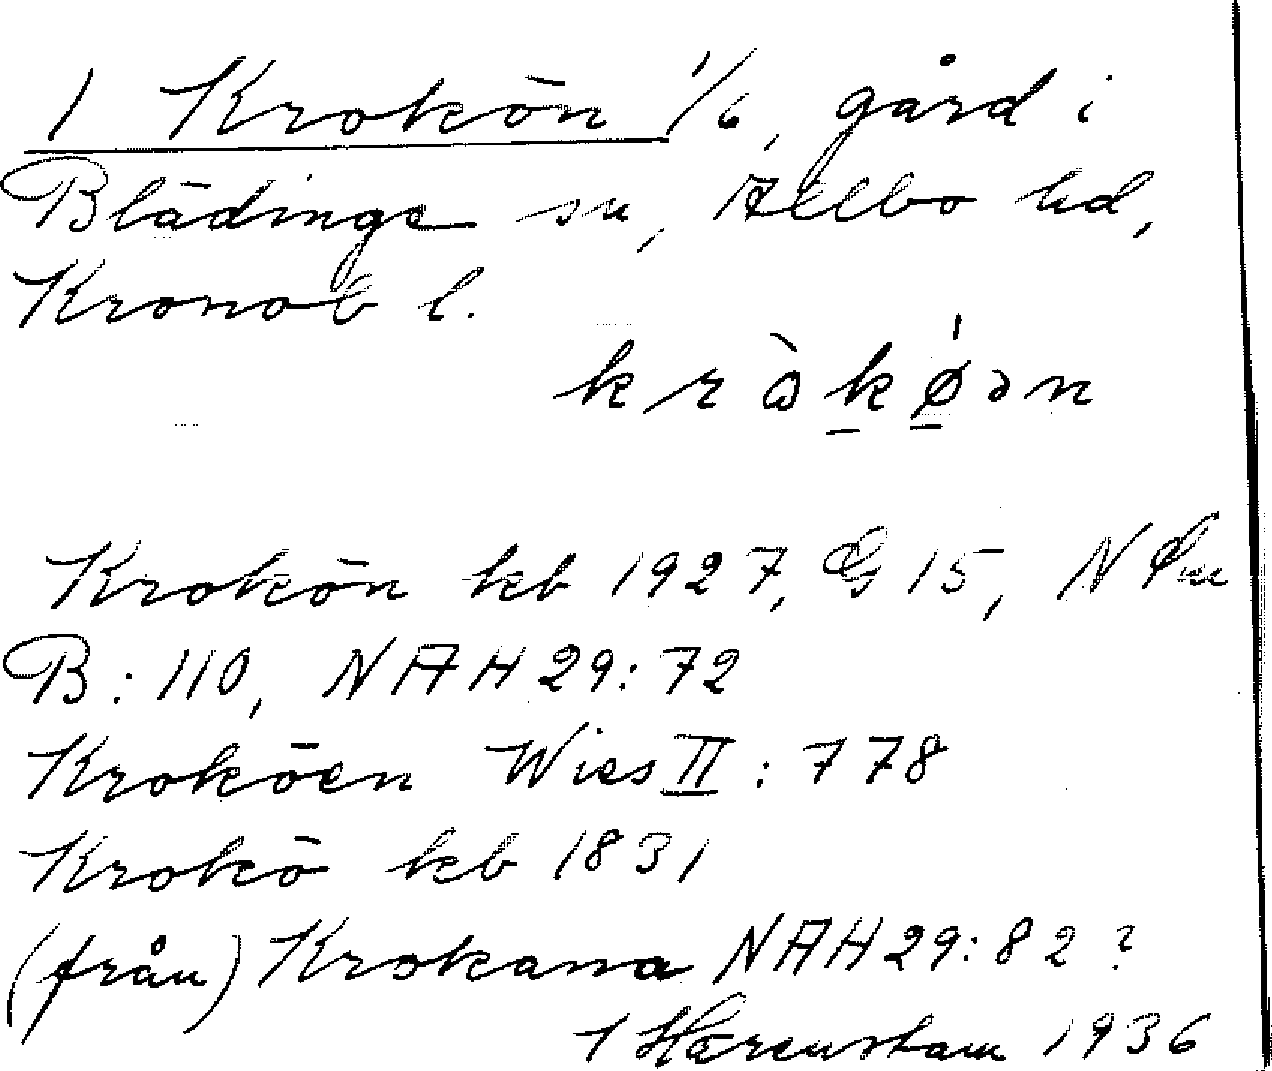 1 Krokön 1/6, gård i
Blädinge sn, Allbo hd,
Kronob l.
kròkǿən
Krokön kb 1927, G 15, N
B: 110, NAH 29: 72
Kroköen Wies II: 778
Krokö kb 1831
(från) Krokana NAH 29: 82 ?
Härenstam 1936